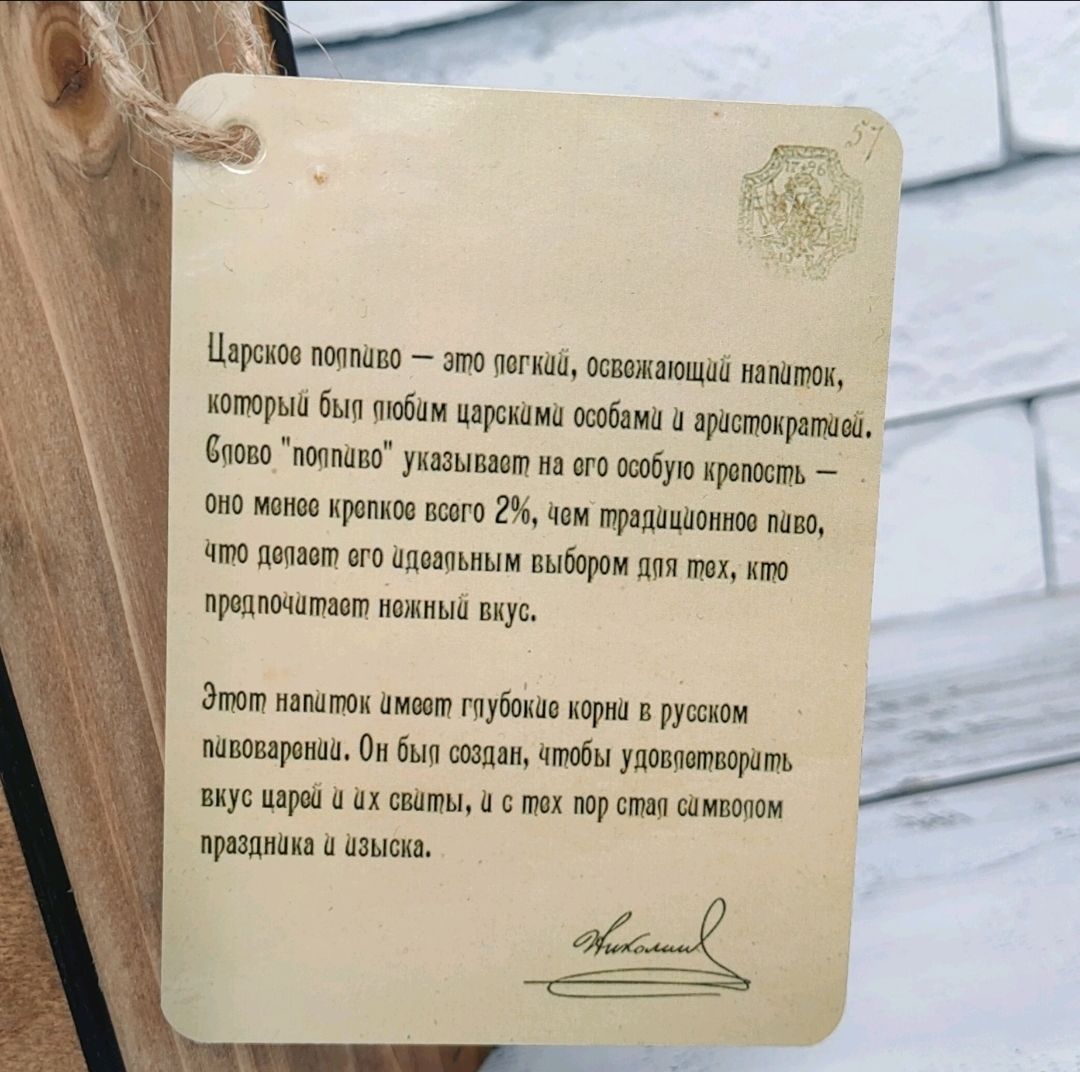 57
1796
Царское полпиво — это легкий, освежающий напиток,
который был любим царскими особами и аристократией.
Слово "полпиво" указывает на его особую крепость —
оно менее крепкое всего 2%, чем традиционное пиво,
что делает его идеальным выбором для тех, кто
предпочитает нежный вкус.
Этот напиток имеет глубокие корни в русском
пивоварении. Он был создан, чтобы удовлетворить
вкус царей и их свиты, и с тех пор стал символом
праздника и изыска.
Николай